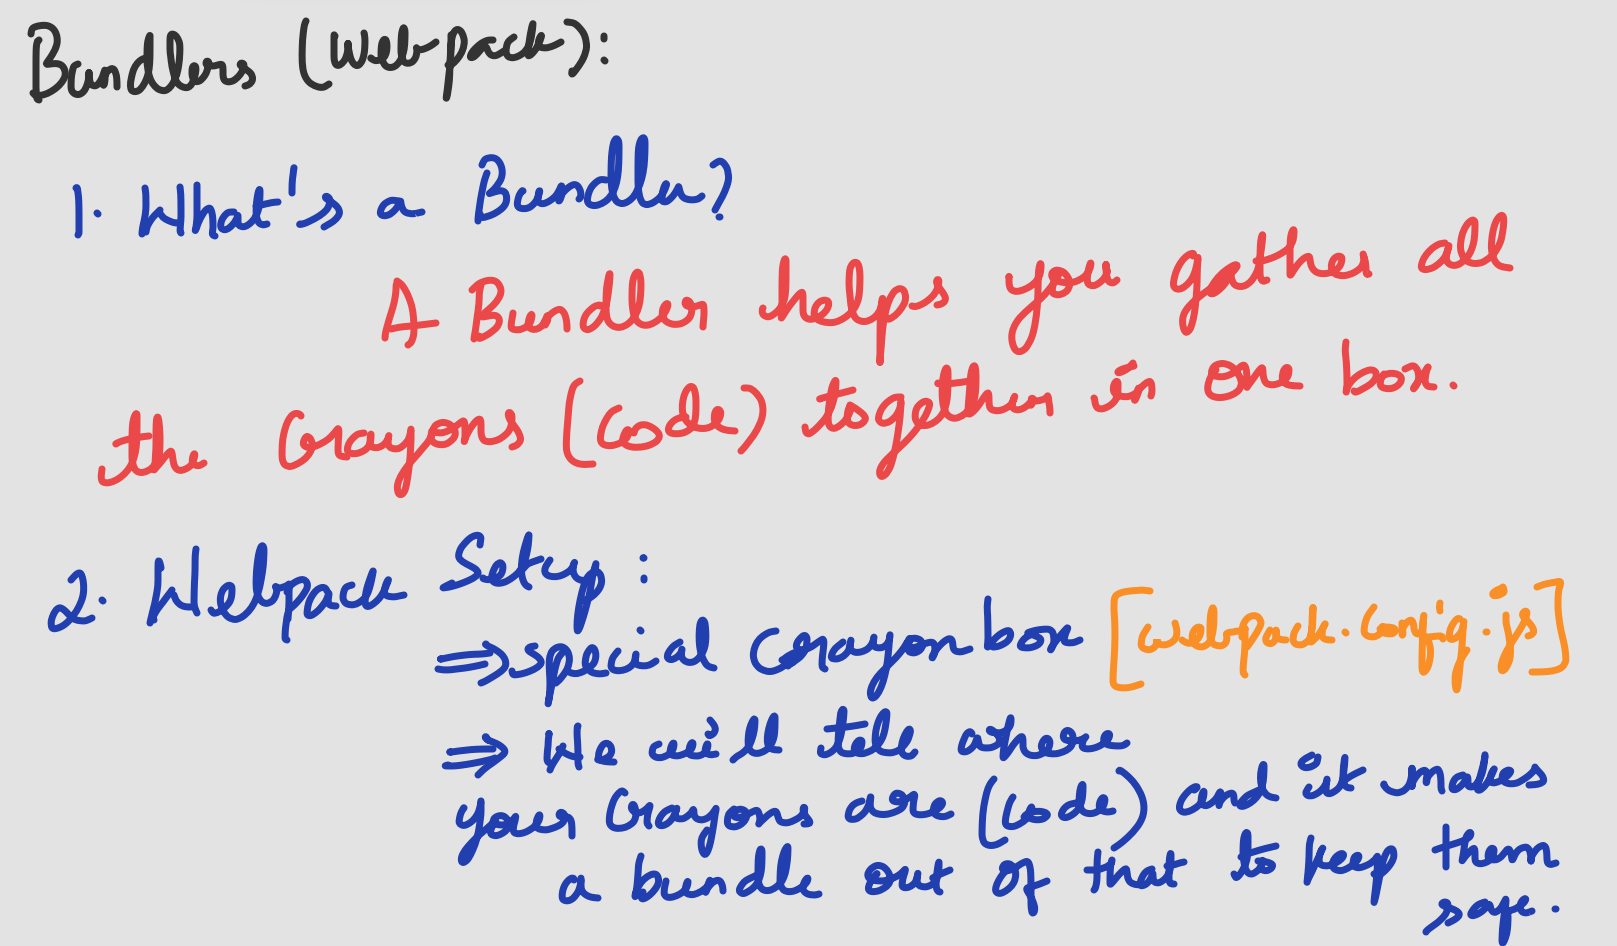 Bundlers (Webpack):
1. What's a Bundler?
A Bundler helps you gather all
the Crayons (code) together in one box.
2. Webpack Setup:
⇒ special Crayon box [webpack.config.js]
⇒ We will tell where
your Crayons are (code) and it makes
a bundle out of that to keep them
safe.